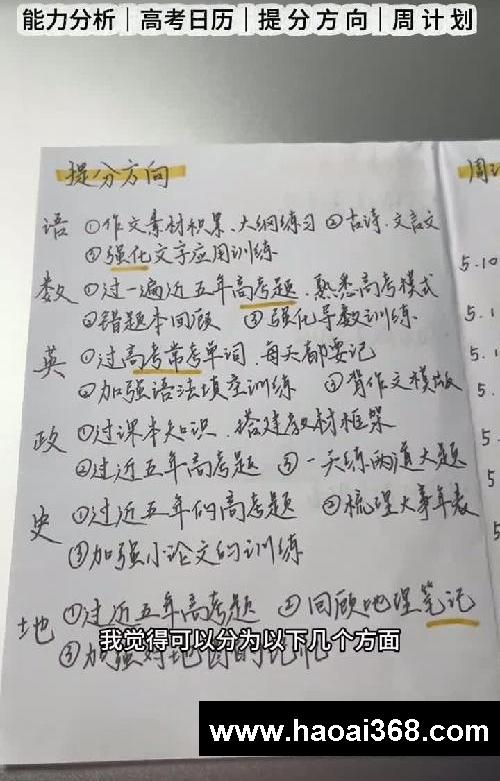 能力分析｜高考日历｜提分方向｜周计划
提分方向
语 ①作文素材积累、大纲练习 ②古诗、文言文
③强化文字应用训练
数 ①过一遍近五年高考题、熟悉高考模式
②错题本回顾 ③强化导数训练
英 ①过高考常考单词、每天都要记
②加强语法填空训练 ③背作文模版
政 ①过课本知识、搭建教材框架
②过近五年高考题 ③一天练两道大题
史 ①过近五年的高考题 ②梳理大事年表
③加强小论文的训练
地 ①过近五年高考题 ②回顾地理笔记
③加强对地图的记忆
我觉得可以分为以下几个方面
周
5.10
5.1
5.1
5.
5.
5
5.
www.haoai368.com